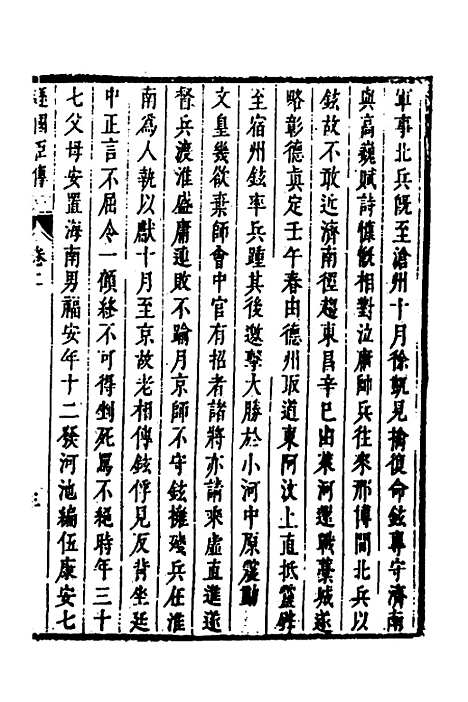 軍事北兵既至滄州十月徐凱見擒復命鉉專守濟南
與高巍賦詩慷慨相對泣庸帥兵往來那博間北兵以
鉉故不敢近濟南徑趨東昌辛巳由萊河還戰藁城遂
略彰德真定壬午春由德州取道東阿汶上直抵靈壁
至宿州鉉率兵踵其後邀擊大勝於小河中原震動
文皇幾欲棄師會中官有招者諸將亦請乘虛直進遂
督兵渡淮盛庸迎敗不踰月京師不守鉉擁殘兵在淮
南為人執以獻十月至京故老相傳鉉俘見反背坐廷
中正言不屈令一顧終不可得剉死罵不絕時年三十
七父母安置海南男福安年十二發河池編伍康安七
臣傳
卷二
三